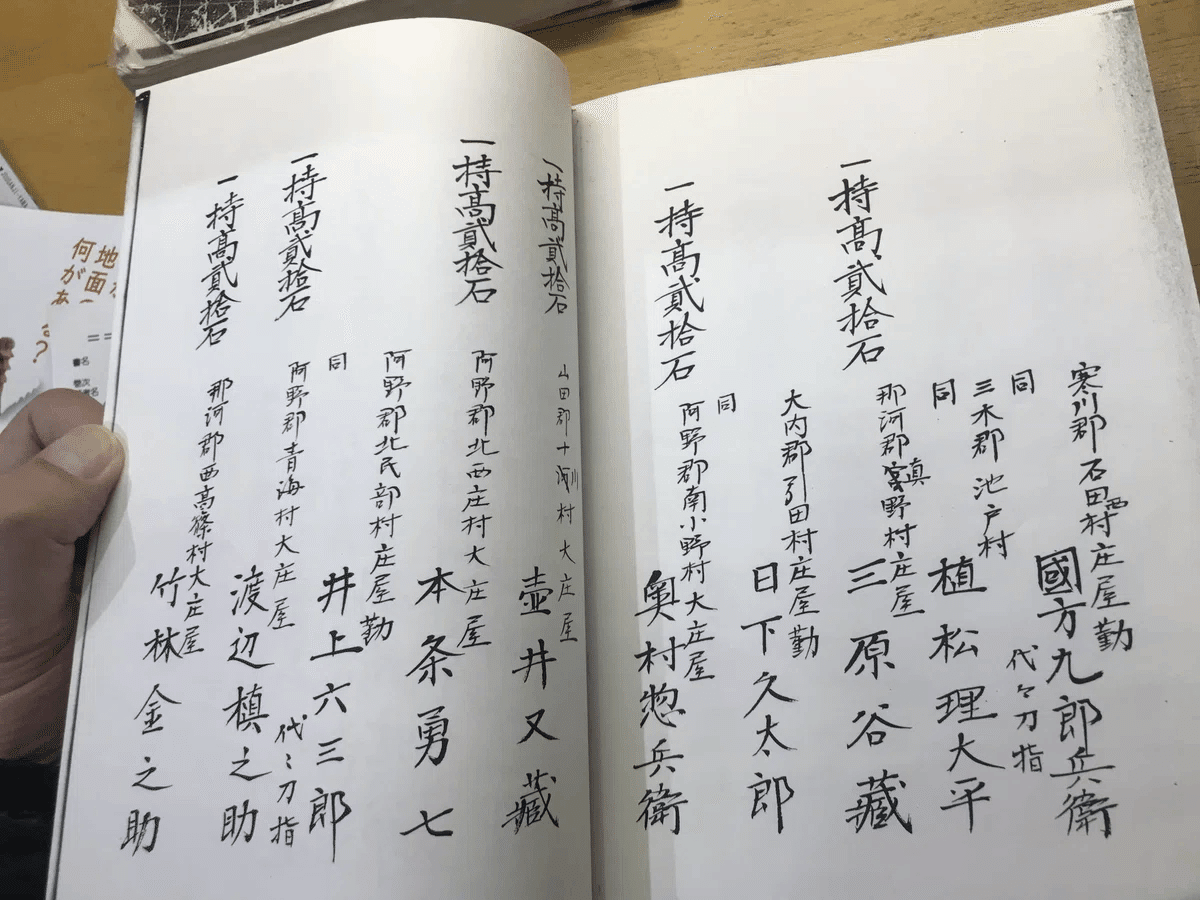 寒川郡石田西村庄屋勤
國方九郎兵衛
同
代々刀指
三木郡池戸村
植松理大平
同
一持高貳拾石
那河郡真野村庄屋
三原谷藏
大内郡引田村庄屋勤
日下久太郎
同
一持高貳拾石
阿野郡南小野村大庄屋
奥村惣兵衛
一持高貳拾石
山田郡十河村大庄屋
壺井又藏
一持高貳拾石
阿野郡北西庄村大庄屋
本条勇七
阿野郡北氏部村庄屋勤
井上六三郎
同
代々刀指
一持高貳拾石
阿野郡青海村大庄屋
渡辺槙之助
一持高貳拾石
那河郡西高篠村大庄屋
竹林金之助
地面
何が
?
書名
巻次